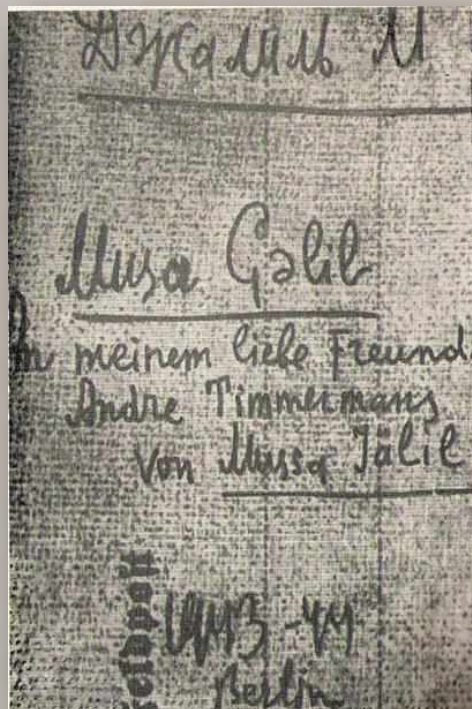 Джалиль М
Musa Çəlil
An meinem liebe Freund
Andre Timmermans
von Mussa Jälil
1943-44
Berlin